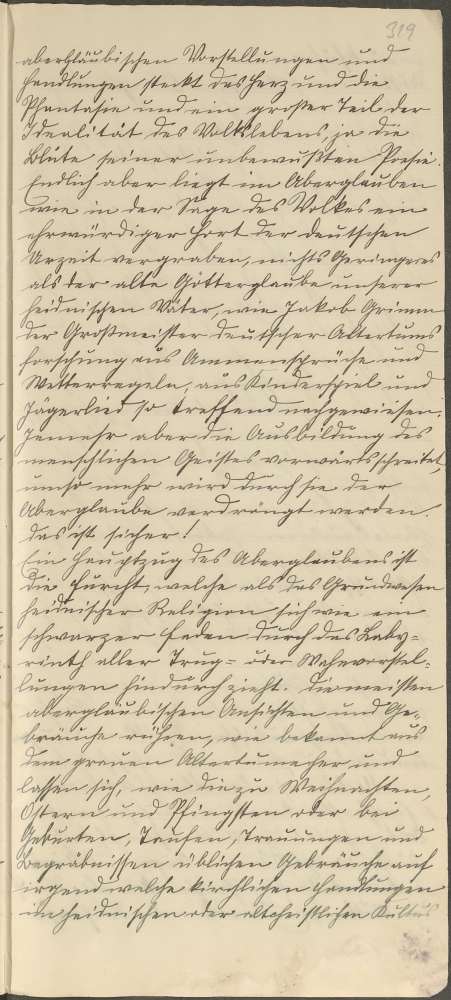 319
abergläubischen Vorstellungen und
Handlungen steckt das Herz und die
Phantasie und ein großer Teil der
Idealität des Volkslebens, ja die
Blüte seiner unbewußten Poesie.
Endlich aber liegt im Aberglauben
wie in der Sage des Volkes ein
ehrwürdiger Hort der deutschen
Urzeit vergraben, nichts Geringeres
als der alte Götterglaube unserer
heidnischen Väter, wie Jakob Grimm
der Großmeister deutscher Altertums
forschung aus Ammensprüche und
Wetterregeln, aus Kinderspiel und
Jägerlied so treffend nachgewiesen.
Jemehr aber die Ausbildung des
menschlichen Geistes vorwärts schreitet,
umso mehr wird durch sie der
Aberglaube verdrängt werden.
Das ist sicher!
Ein Hauptzug des Aberglaubens ist
die Furcht, welche als das Grundwesen
heidnischer Religion sich wie ein
schwarzer Faden durch das Laby-
rinth aller Trug= oder Wahnvorstel-
lungen hindurch zieht. Die meisten
abergläubischen Ansichten und Ge-
bräuche rühren, wie bekannt aus
dem grauen Altertume her, und
lassen sich, wie die zu Weihnachten,
Ostern und Pfingsten oder bei
Geburten, Taufen, Trauungen und
Begräbnissen üblichen Gebräuche auf
irgend welche kirchlichen Handlungen
im heidnischen oder altchristlichen Kultus